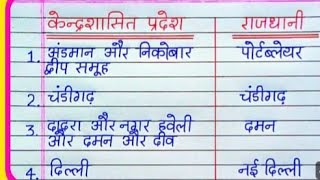 केन्द्रशासित प्रदेश राजधानी
1. अंडमान और निकोबार पोर्टब्लेयर
द्वीप समूह
2. चंडीगढ़ चंडीगढ़
3. दादरा और नगर हवेली दमन
और दमन और दीव
4. दिल्ली नई दिल्ली